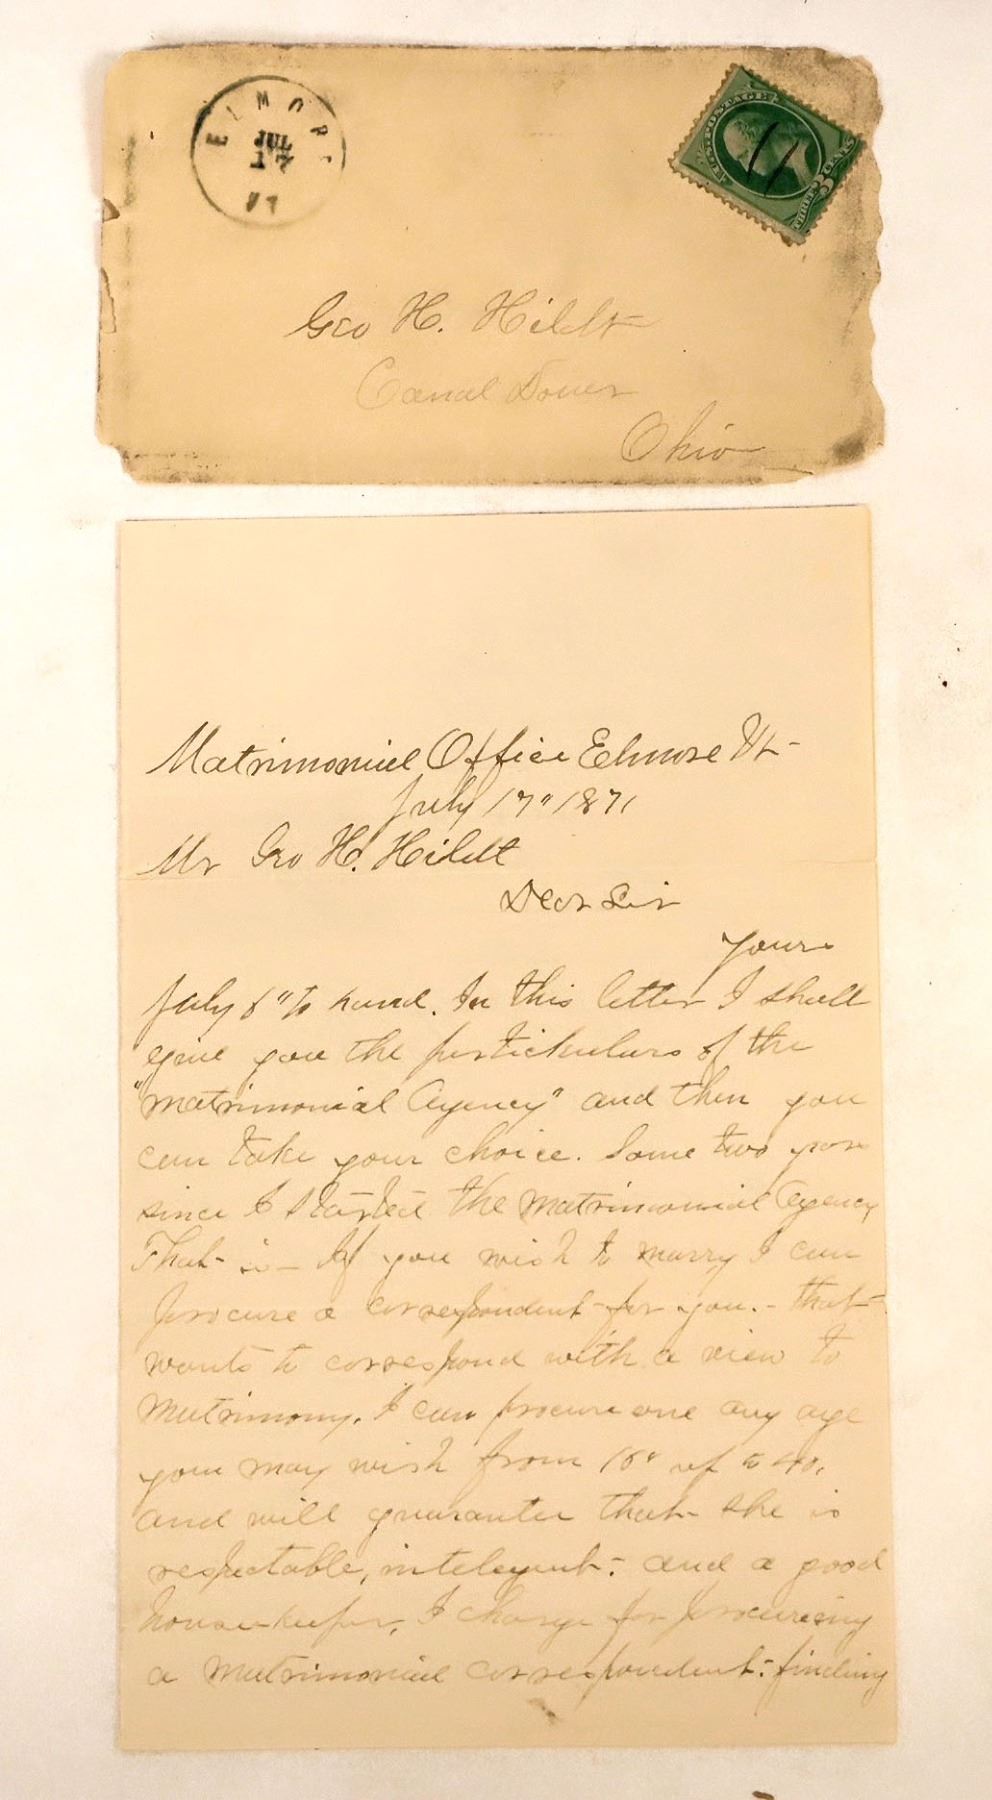 ELMORE
JUL
17
71
U.S. POSTAGE
THREE CENTS
Geo H. Hildt
Canal Dover
Ohio
Matrimonial Office Elmore Vt-
July 17" 1871
Mr Geo H. Hildt
Dear Sir
Yours
July 6" to hand. In this letter I shall
give you the pertickulars of the
"Matrimonial Agency" and then you
can take your choice. Some two years
since I started the Matrimonial Agency
That- is- If you wish to marry I can
procure a correspondent- for you.- that-
wants to correspond with a view to
Matrimony. I can procure one any age
you may wish from 18" up to 40,
and will guarantee that- she is
respectable, intelegent- and a good
house-keeper, I charge for procureing
a Matrimonial correspondent- finding